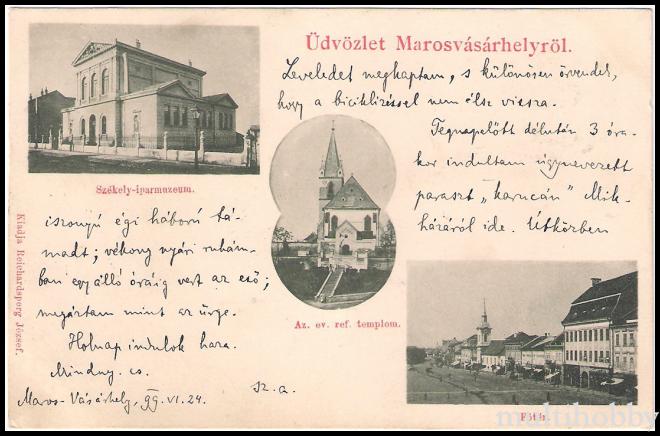 Üdvözlet Marosvásárhelyről.
Leveledet megkaptam, s különösen örvendek,
hogy a biciklizéssel nem élsz vissza.
Tegnapelőtt délután 3 óra-
kor indultam úgynevezett
paraszt „karucán” Mik-
házáról ide. Útközben
Székely-iparmuzeum.
iszonyú égi háború tá-
madt; vékony nyári ruhám-
ban egy álló óráig vert az eső;
megáztam mint az ürge.
Holnap indulok haza.
Mindny. cs.
sz. a.
Maros-Vásárhely, 99. VI. 24.
Az. ev. ref. templom.
Főtér.
Kiadja Reichardsperg József.
multihobby